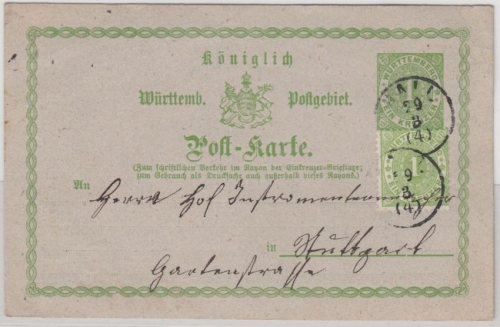 Königlich
Württemb. Postgebiet.
Post-Karte.
(Zum schriftlichen Verkehr im Rayon der Einkreuzer-Brieftaxe;
zum Gebrauch als Drucksache auch außerhalb dieses Rayons.)
WÜRTTEMBERG
1
29
3
(4)
1
9
3
(4)
An Herrn Hof
in Stuttgart
Gartenstrasse